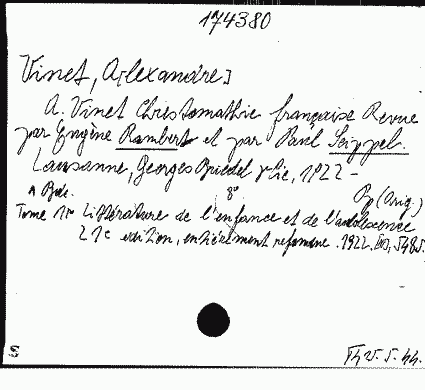 174380
Vinet, A[lexandre]
A. Vinet Chrestomathie française Revue
par Eugène Rambert et par Paul Seippel.
Lausanne, Georges Bridel & Cie, 1922-
8°
Tome 1er Littérature de l'enfance et de l'adolescence
21e edition, entièrement refondue. 1922. 548 S.